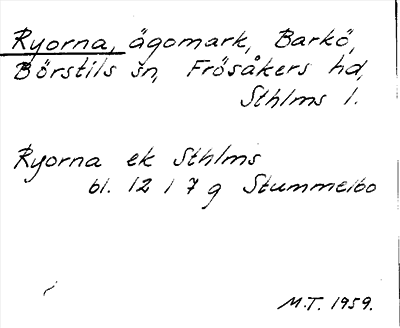 Ryorna, ägomark, Barkö,
Börstils sn, Frösåkers hd,
Sthlms l.
Ryorna ek Sthlms
bl. 12 I 7 g Stummelbo
M.T. 1959.